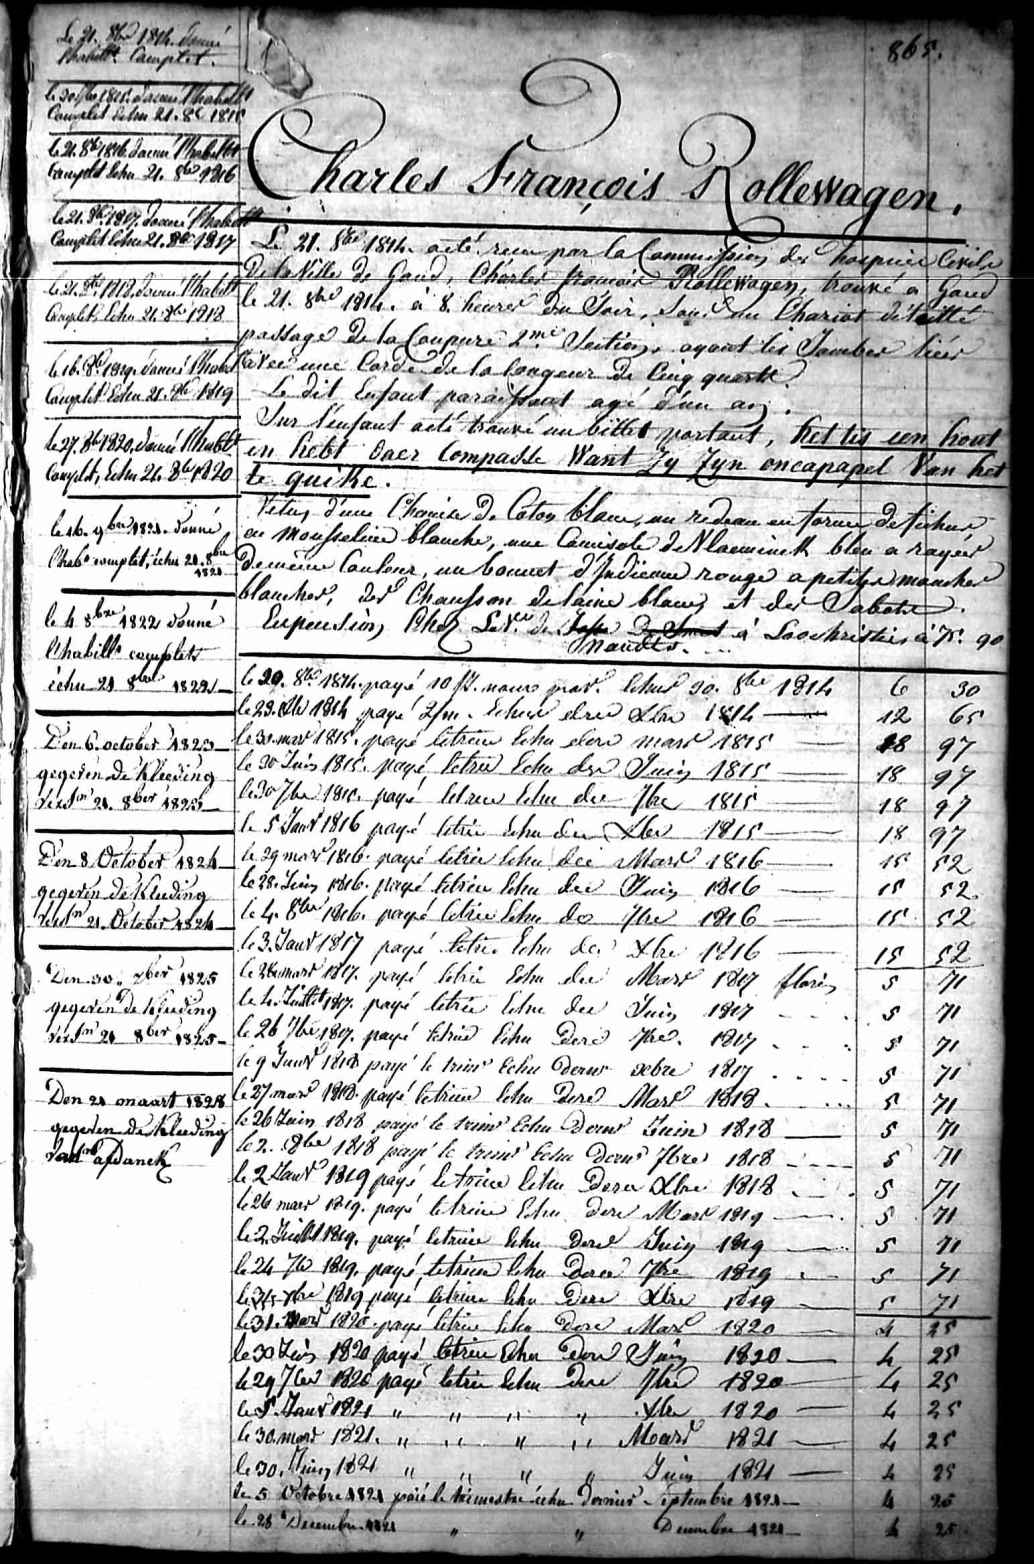 865.
Le 21. 8bre 1814. donné
l'habillt. Complet.
le 20 1815. donné l'habillt
Complet échu 21. 8e 1815
le 21. 8bre 1816. donné l'habillt
Complet échu 21. 8bre 1816
le 21. 8bre 1817. donné l'habillt
Complet échu 21. 8bre 1817
le 21. 8bre 1818. donné l'habillt
Complet, échu 21. 8bre 1818
le 16. 8bre 1819. donné l'habillt
Complet Echu 21. 8bre 1819
le 27. 8bre 1820. donné l'habillt
Complet, Echu 21. 8bre 1820
le 16. 9bre 1821. donné
l'hab. complet, échu 21. 8bre
1821
le 4 8bre 1822 donné
l'habillt complet
échu 21 8bre 1822
Den 6. october 1823
gegeven de Kleeding
21. 8ber 1823
Den 8 October 1824
gegeven de Kleeding
21. October 1824
Den 30. 1825
gegeven de Kleeding
21 8ber 1825
Den 21 maart 1828
gegeven de Kleeding
afdanck
Charles François Rollewagen.
Le 21. 8bre 1814. a été recu par la Commission des hospices Civils
de la Ville de Gand, Charles francois Rollewagen, trouvé a Gand
le 21. 8bre 1814. à 8. heures du Soir, Sous un Chariot
passage de la Coupure 2me Section, ayant les Jambes liées
avec une Corde de la longeur de Cinq quarts.
Le dit Enfant paraissant agé d'un an.
Sur l'enfant a été trouvé un billet portant, het is een hout
en hebt daer Compasse Want Zy Zyn oncapapel Van het
te quiken.
Vetu d'une Chemise de Coton blanc, un rideau en forme de fichu
en Mousseline blanche, une Camisole de bleu a rayés
de même Couleur, un bonnet d'Indienne rouge a petites mouches
blanches, des Chausson de laine blanc et des Sabots.
En pension Chez La Ve. de à Loochristie, à fr. 90
le 20. 8bre 1814. payé 10 Jrs. nours pror. Echus 30. 8bre 1814 6 30
le 29. Xbre 1814 payé 2 m. Echus Xbre 1814 12 65
le 30 mars 1815. payé letrim Echu mars 1815 18 97
le 30 Juin 1815. payé letrim Echu der Juin 1815 18 97
le 30 7bre 1815. payé letrim Echu der 7bre 1815 18 97
le 5 Janv 1816 payé letrim Echu der Xbre 1815 18 97
le 29 mars 1816. payé letrim Echu der Mars 1816 15 52
le 28. Juin 1816. payé letrim Echu der Juin 1816 15 52
le 4. 8bre 1816. payé letrim Echu der 7bre 1816 15 52
le 3. Janv 1817 payé letrim Echu der Xbre 1816 15 52
le mars 1817. payé letrim Echu der Mars 1817 florins 5 71
le 4. Juillet 1817. payé letrim Echu der Juin 1817 5 71
le 26 7bre 1817. payé letrim Echu der 7bre. 1817 5 71
le 9 Janvr 1818 payé le trimr Echu dernr xbre 1817 5 71
le 27. mars 1818. payé letrim Echu der Mars 1818 5 71
le 26 Juin 1818 payé le trimr Echu dernr Juin 1818 5 71
le 2. 8bre 1818 payé le trimr Echu dernr 7bre 1818 5 71
le 2 Janvr 1819 payé letrim Echu der Xbre 1818 5 71
le 26 mars 1819. payé letrim Echu der Mars 1819 5 71
le 2 Juillet 1819. payé letrim Echu der Juin 1819 5 71
le 24 7bre 1819. payé letrim Echu der 7bre 1819 5 71
le 31 Xbre 1819 payé letrim Echu der Xbre 1819 5 71
le 31. Mars 1820. payé letrim Echu der Mars 1820 4 25
le 30 Juin 1820 payé letrim Echu der Juin 1820 4 25
le 29 7bre 1820 payé letrim Echu der 7bre 1820 4 25
le 5. Janvr 1821 " " " " Xbre 1820 4 25
le 30. mars 1821. " " " " Mars 1821 4 25
le 30. Juin 1821 " " " " Juin 1821 4 25
le 5 Octobre 1821 payé le trimestre échu dernier Septembre 1821 4 25
le 28 Decembre 1821 " " Decembre 1821 4 25